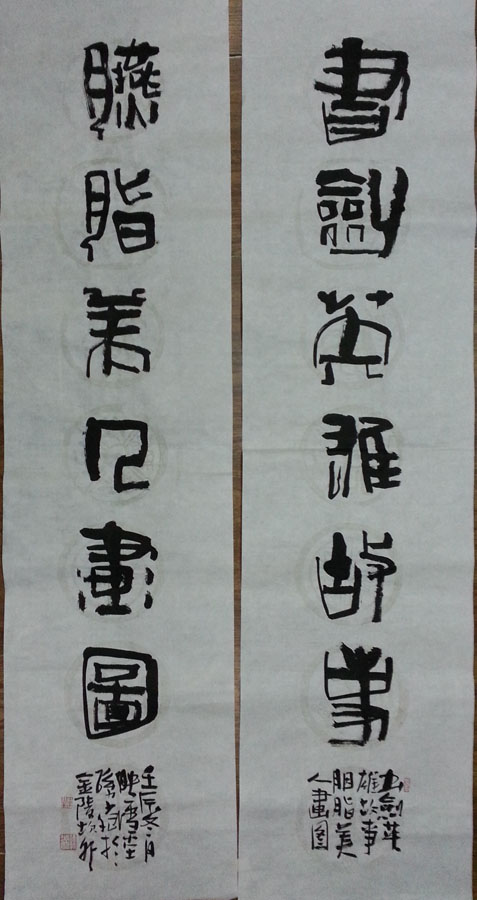 書劍英雄故事
书劍英
雄故事
胭脂美
人畫圖
臙脂美人畫圖
壬辰冬月
映雪堂
金陵